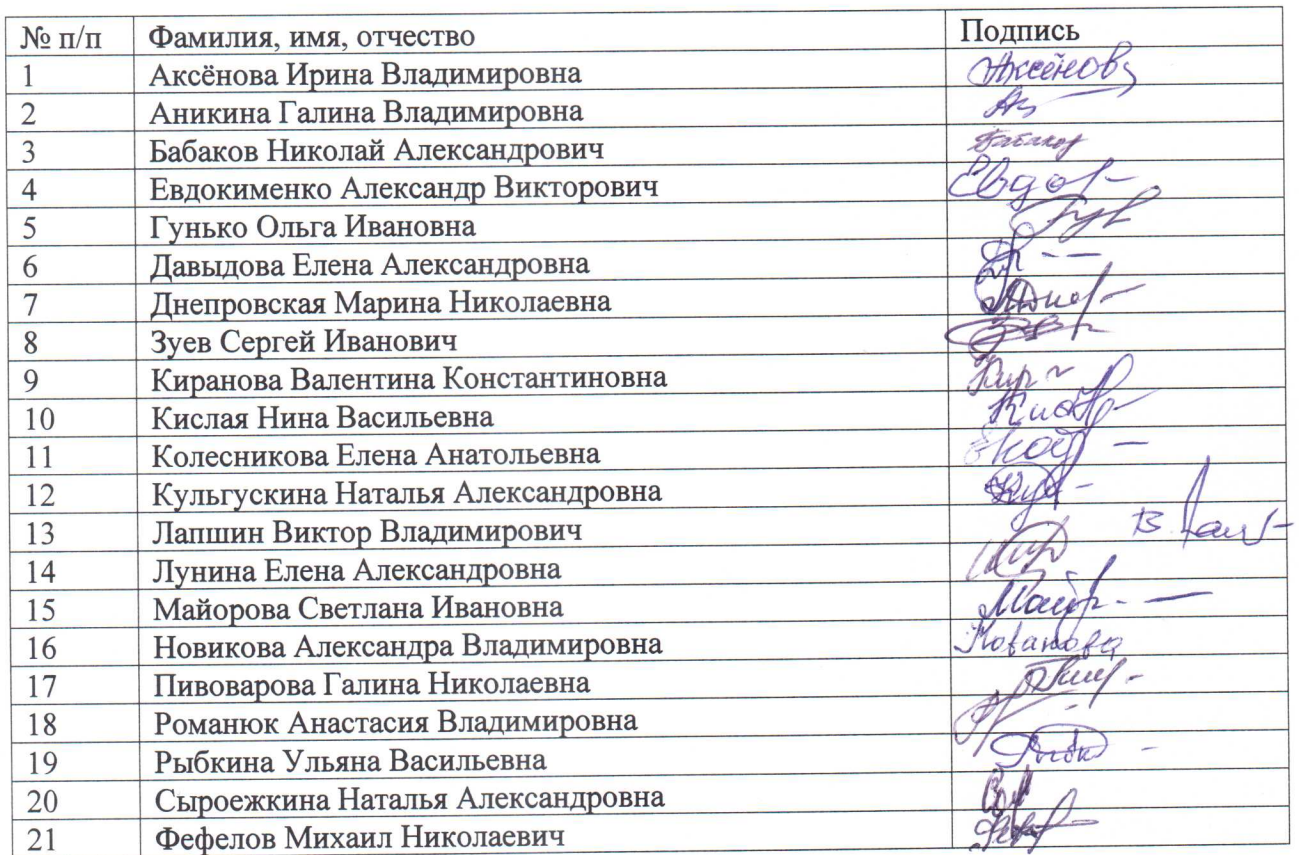 № п/п Фамилия, имя, отчество Подпись
1 Аксёнова Ирина Владимировна Аксёнова
2 Аникина Галина Владимировна
3 Бабаков Николай Александрович
4 Евдокименко Александр Викторович
5 Гунько Ольга Ивановна
6 Давыдова Елена Александровна
7 Днепровская Марина Николаевна
8 Зуев Сергей Иванович
9 Киранова Валентина Константиновна
10 Кислая Нина Васильевна
11 Колесникова Елена Анатольевна
12 Кульгускина Наталья Александровна
13 Лапшин Виктор Владимирович
14 Лунина Елена Александровна
15 Майорова Светлана Ивановна
16 Новикова Александра Владимировна
17 Пивоварова Галина Николаевна
18 Романюк Анастасия Владимировна
19 Рыбкина Ульяна Васильевна
20 Сыроежкина Наталья Александровна
21 Фефелов Михаил Николаевич